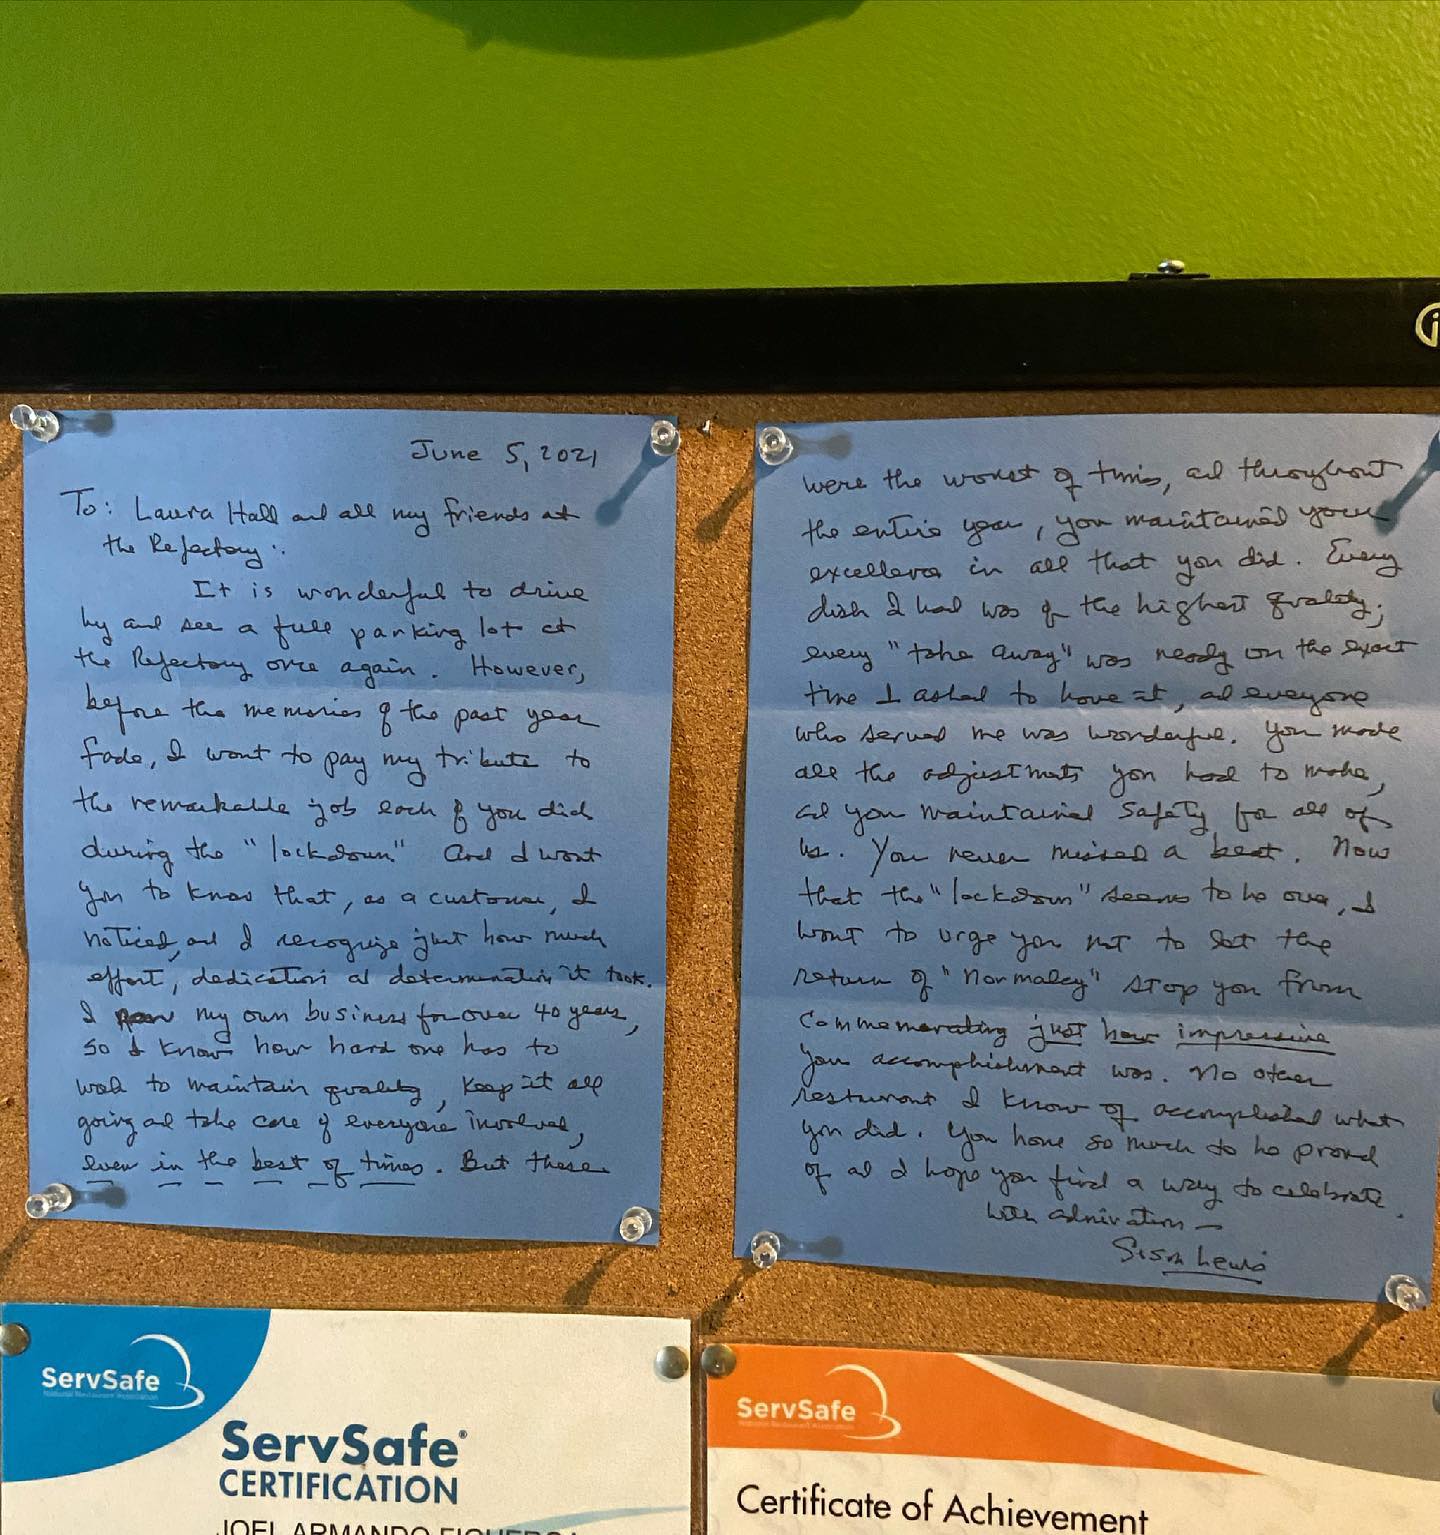 June 5, 2021
To: Laura Hall and all my friends at
the Refectory:
It is wonderful to drive
by and see a full parking lot at
the Refectory once again. However,
before the memories of the past year
fade, I want to pay my tribute to
the remarkable job each of you did
during the "lockdown." And I want
you to know that, as a customer, I
noticed, and I recognize just how much
effort, dedication and determination it took.
I ran my own business for over 40 years,
so I know how hard one has to
work to maintain quality, keep it all
going and take care of everyone involved,
even in the best of times. But these
were the worst of times, and throughout
the entire year, you maintained your
excellence in all that you did. Every
dish I had was of the highest quality;
every "take away" was ready on the exact
time I asked to have it, and everyone
who served me was wonderful. You made
all the adjustments you had to make,
and you maintained safety for all of
us. You never missed a beat. Now
that the "lockdown" seems to be over, I
want to urge you not to let the
return of "normalcy" stop you from
commemorating just how impressive
your accomplishment was. No other
restaurant I know of accomplished what
you did. You have so much to be proud
of and I hope you find a way to celebrate.
With admiration –
Lewis
ServSafe
National Restaurant Association
ServSafe®
CERTIFICATION
JOEL ARMANDO FIGUEROA
ServSafe
National Restaurant Association
Certificate of Achievement